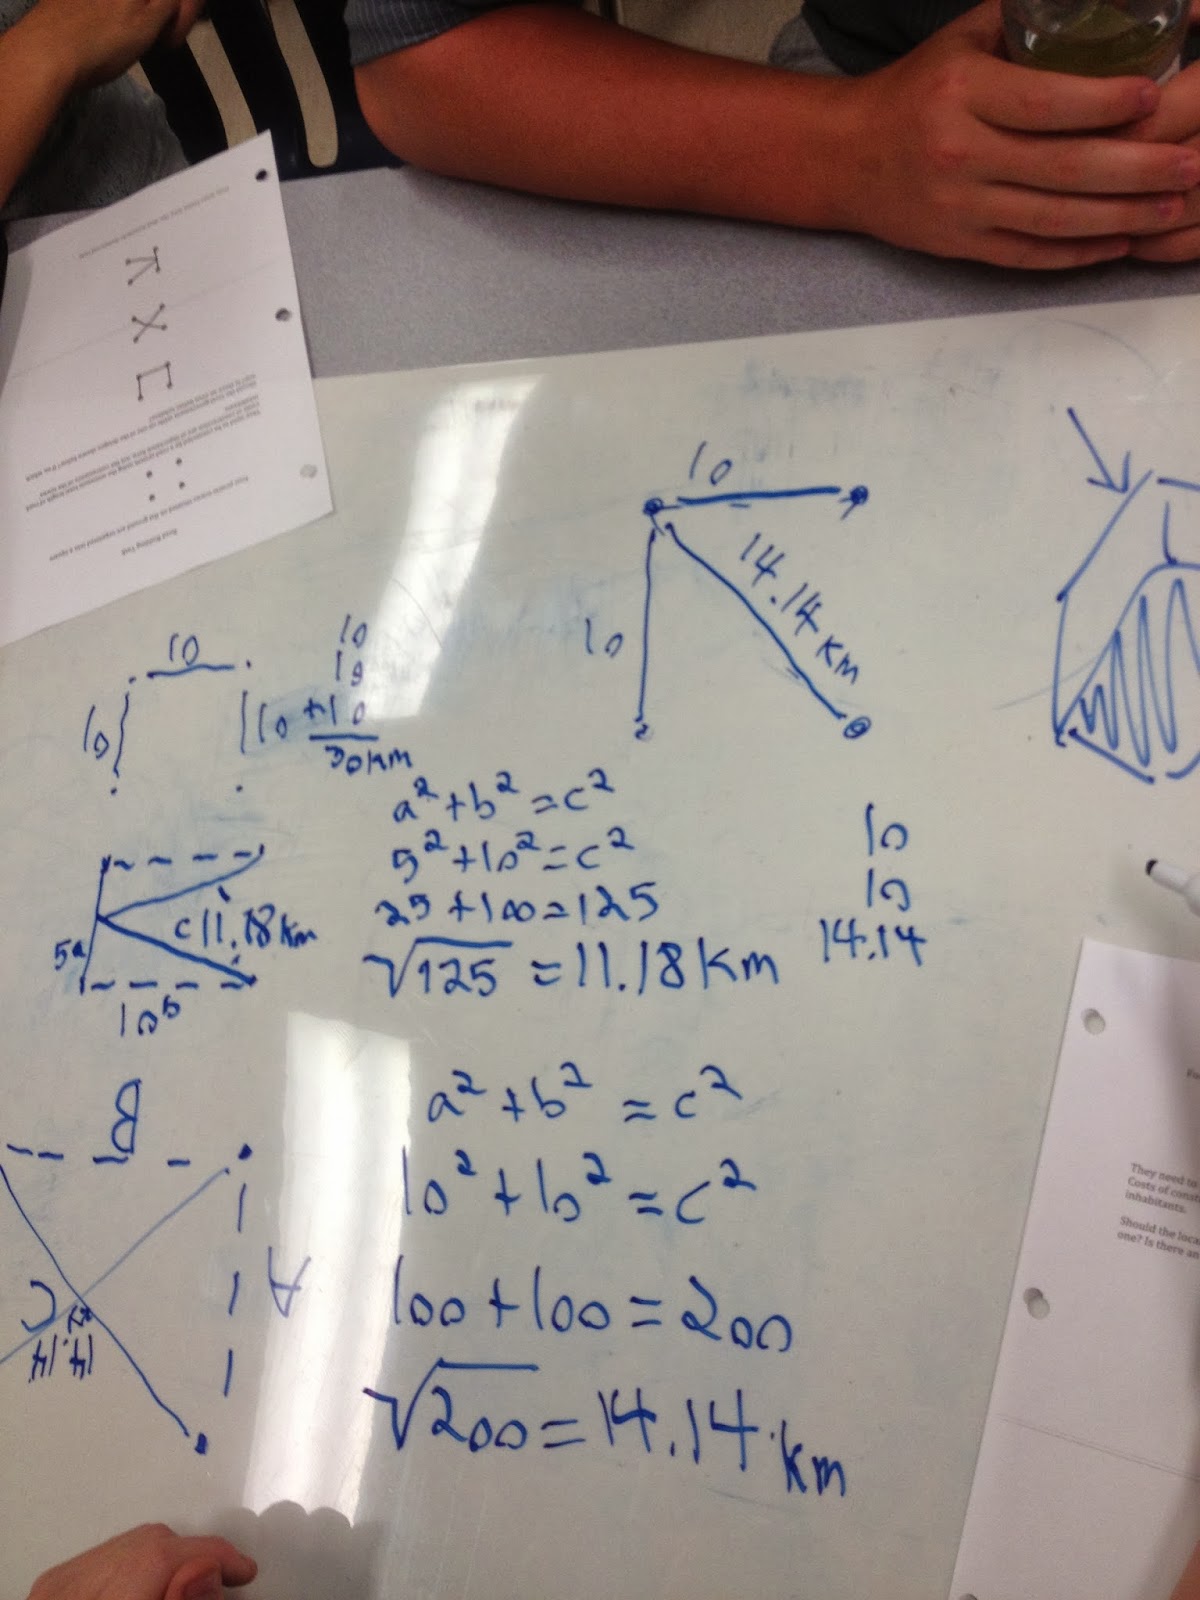 10
10
14.14 km
10
10
10 + 10
10
10
30 km
a² + b² = c²
5² + 10² = c²
25 + 100 = 125
√125 = 11.18 km
5a
c 11.18 km
10 b
10
10
14.14
B
A
C
14.14
a² + b² = c²
10² + 10² = c²
100 + 100 = 200
√200 = 14.14 km
Road Building Task
They need to
Costs of cons
inhabitants.
Should the loca
one? Is there an